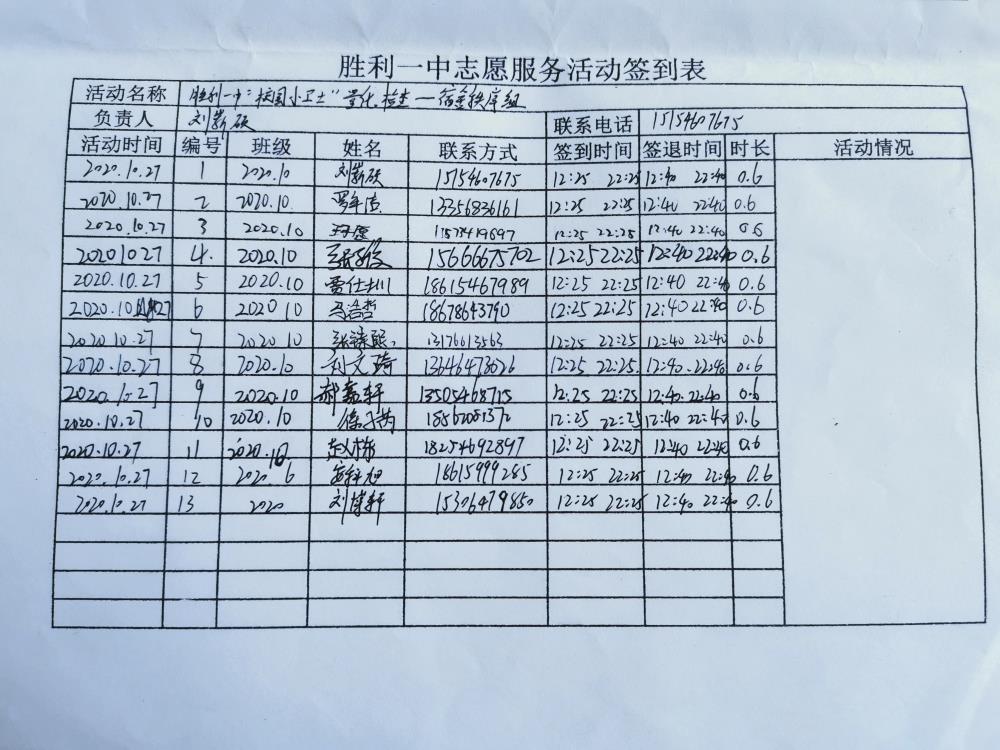 胜利一中志愿服务活动签到表
活动名称 胜利一中"校园小卫士"量化检查—宿舍秩序组
负责人 刘薪硕 联系电话 15154607675
活动时间 编号 班级 姓名 联系方式 签到时间 签退时间 时长 活动情况
2020.10.27 1 2020.10 刘薪硕 15154607675 12:25 22:25 12:40 22:40 0.6
2020.10.27 2 2020.10. 13356836161 12:25 22:25 12:40 22:40 0.6
2020.10.27 3 2020.10 12:25 22:25 12:40 22:40 0.6
20201027 4. 2020.10 15666675702 12:25 22:25 12:40 22:40 0.6
2020.10.27 5 2020.10 贾仕圳 18615467989 12:25 22:25 12:40 22:40 0.6
2020.10.27 6 2020 10 马浩哲 18678643790 12:25 22:25 12:40 22:40 0.6
2020 10.27 7 2020 10 13176613563 12:25 22:25 12:40 22:40 0.6
2020.10.27 8 2020.10 刘文琦 13646478626 12:25 22:25. 12:40. 22:40 0.6
2020.10.27 9 2020.10 郝嘉轩 13505468715 12:25 22:25 12:40 22:40 0.6
2020.10.27 10 2020.10 12:25 22:25 12:40 22:40 0.6
2020.10.27 11 赵栋 18254692897 12:25 22:25 12:40 22:40 0.6
2020.10.27 12 2020.6 18615999285 12:25 22:25 12:40 22:40 0.6
2020.10.27 13 2020 刘博轩 15306479850 12:25 22:25 12:40 22:40 0.6